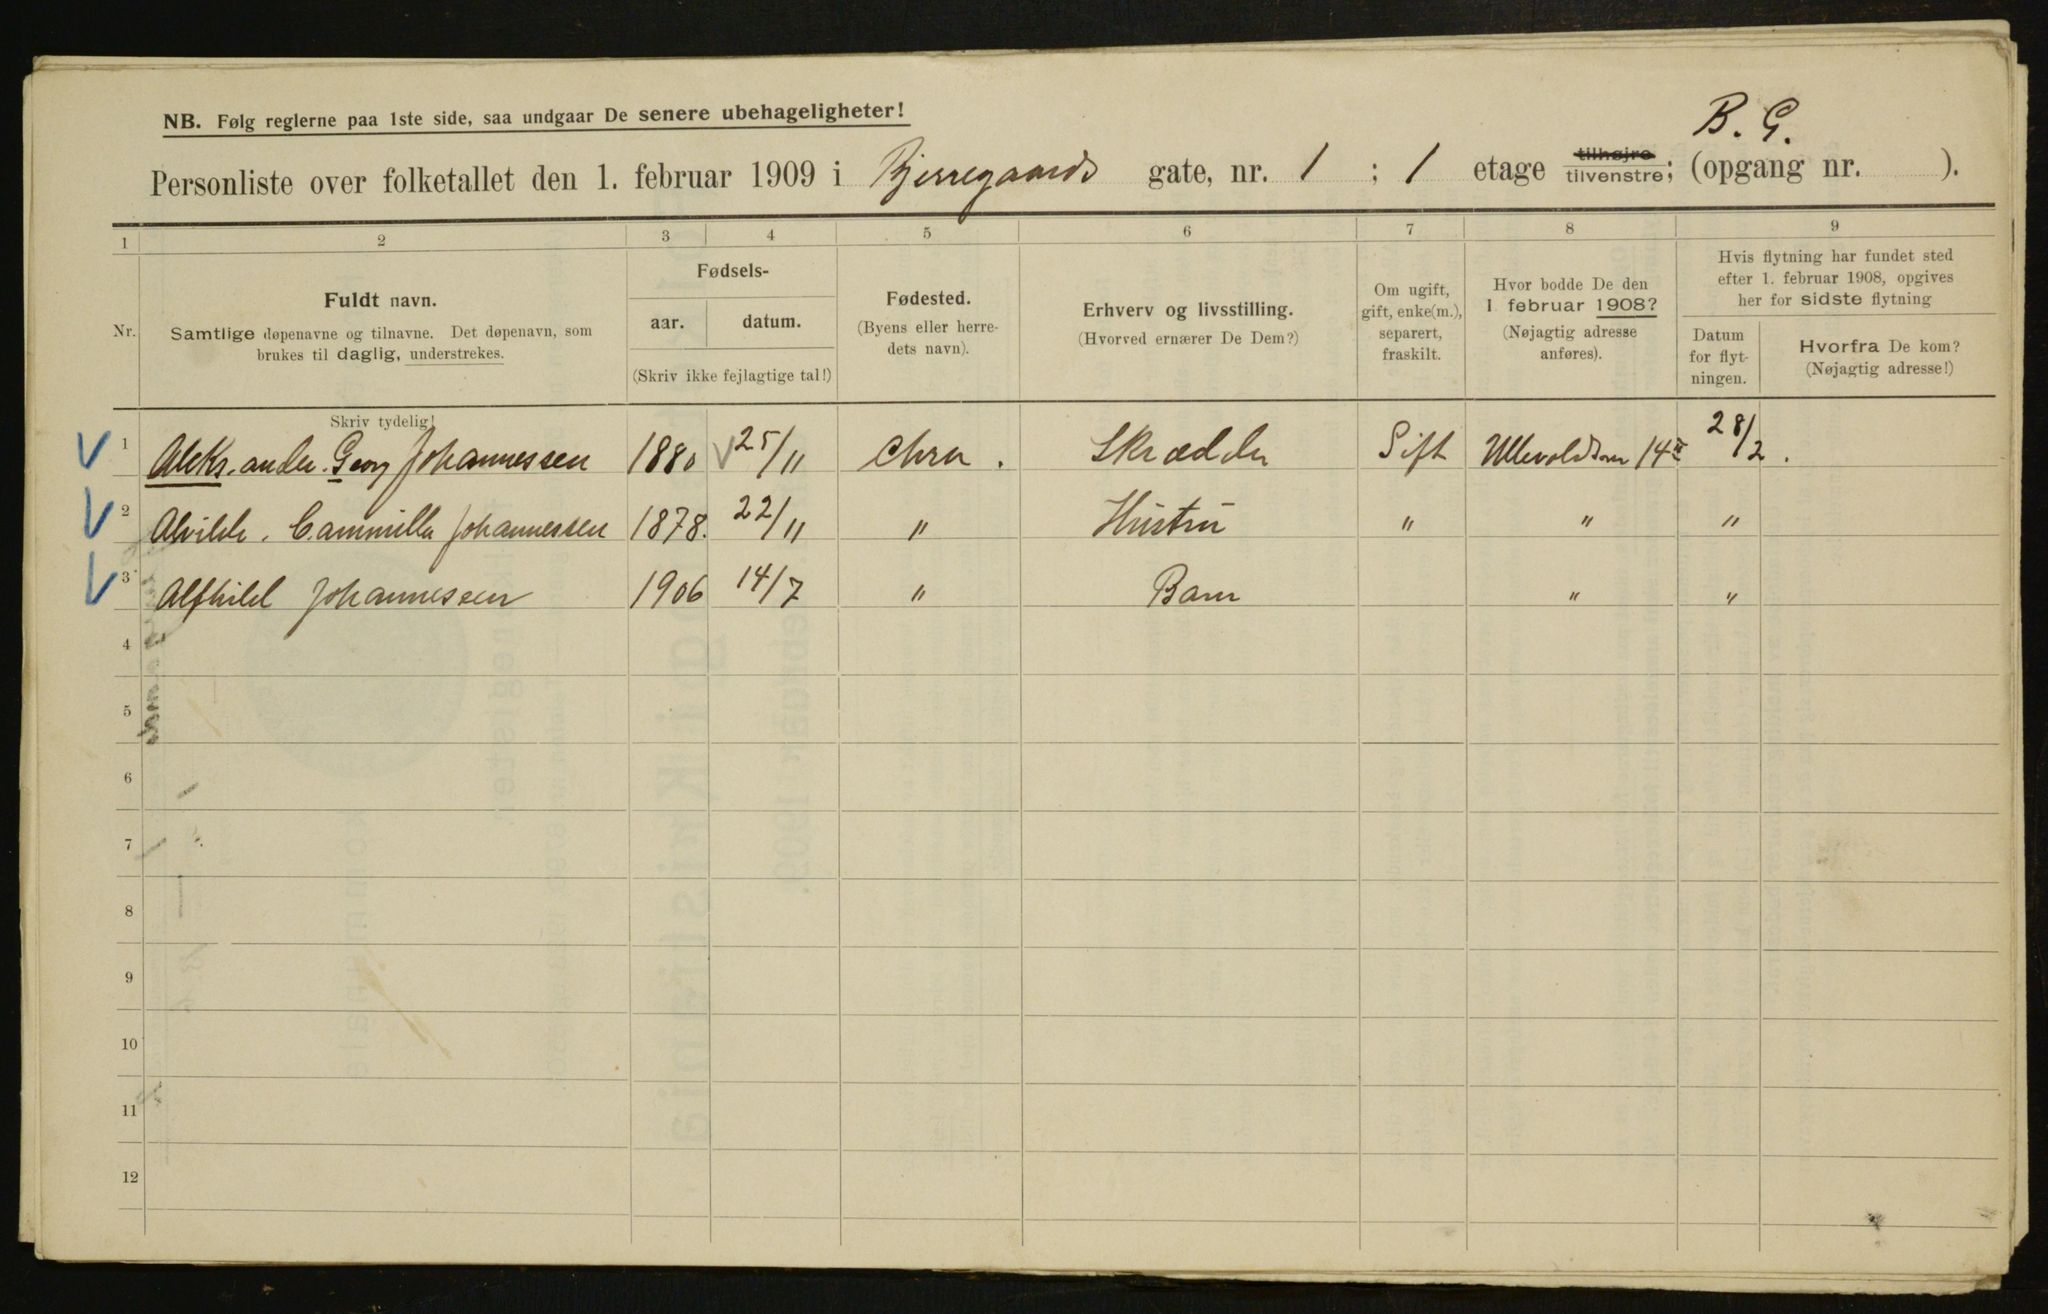 B. G.
NB. Følg reglerne paa 1ste side, saa undgaar De senere ubehageligheter!
Personliste over folketallet den 1. februar 1909 i Bjerregaards gate, nr. 1 ; 1 etage tilhøjre tilvenstre; (opgang nr. ).
1 2 3 4 5 6 7 8 9
Nr.
Fuldt navn.
Samtlige døpenavne og tilnavne. Det døpenavn, som
brukes til daglig, understrekes.
Fødsels-
aar. datum.
(Skriv ikke fejlagtige tal!)
Fødested.
(Byens eller herre-
dets navn).
Erhverv og livsstilling.
(Hvorved ernærer De Dem?)
Om ugift,
gift, enke(m.),
separert,
fraskilt.
Hvor bodde De den
1 februar 1908?
(Nøjagtig adresse
anføres).
Hvis flytning har fundet sted
efter 1. februar 1908, opgives
her for sidste flytning
Datum
for flyt-
ningen.
Hvorfra De kom?
(Nøjagtig adresse!)
Skriv tydelig!
1 Aleks.ander. Georg Johannessen 1880 25/11 Chra. Skrædder Gift 14 28/2.
2 Alvilde. Cammilla Johannessen 1878. 22/11 " Hustru " " "
3 Alfhild Johannessen 1906 14/7 " Barn " "
4
5
6
7
8
9
10
11
12